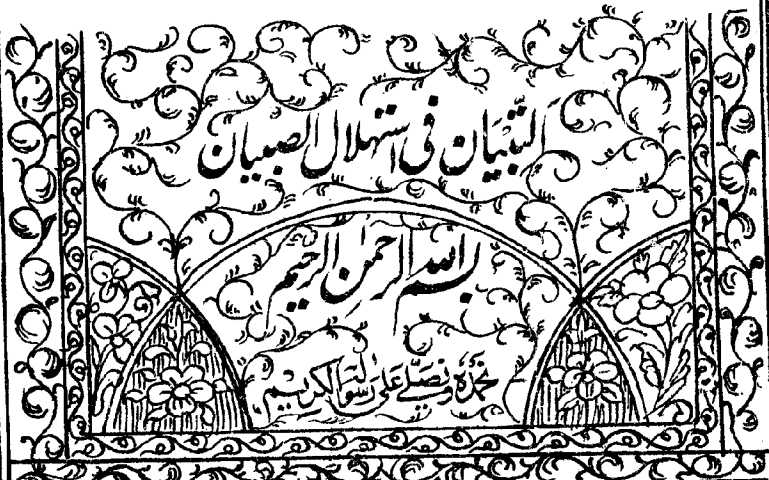 التبيان في استهلال الصبيان
بسم الله الرحمن الرحيم
نحمده ونصلے علی رسوله الكريم